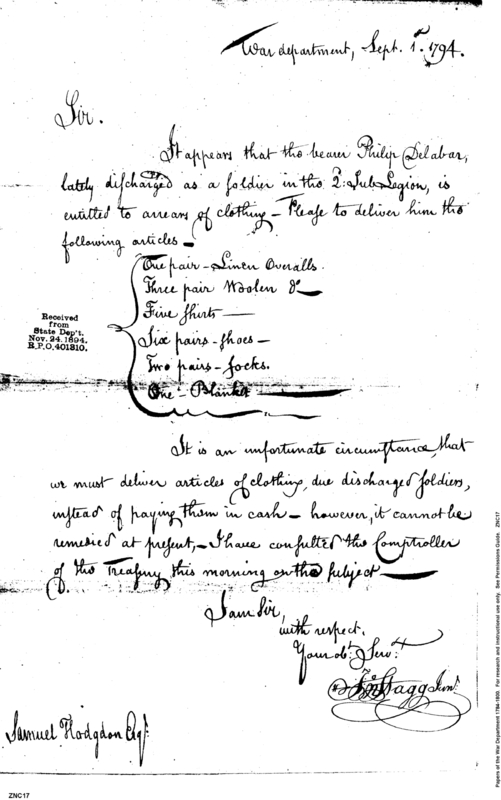 War department, Sept. 1st. 1794.
Sir.
It appears that the bearer Philip Delabar,
lately discharged as a soldier in the 2d: Sub Legion, is
entitled to arrears of clothing — Please to deliver him the
following articles —
One pair - Linen Overalls.
Three pair Woolen do —
Five shirts —
Six pairs - shoes —
Two pairs - socks.
One - Blanket —
Received
from
State Dep't.
Nov. 24. 1894.
R.P.O. 401810.
It is an unfortunate circumstance, that
we must deliver articles of clothing, due discharged soldiers,
instead of paying them in cash — however, it cannot be
remedied at present, — I have consulted the Comptroller
of the Treasury this morning on the subject —
I am Sir,
with respect,
Your obt: Servt:
Jno Stagg Junr.
Samuel Hodgdon Esqr.
ZNC17
Papers of the War Department 1784-1800. For research and instructional use only. See Permissions Guide. ZNC17